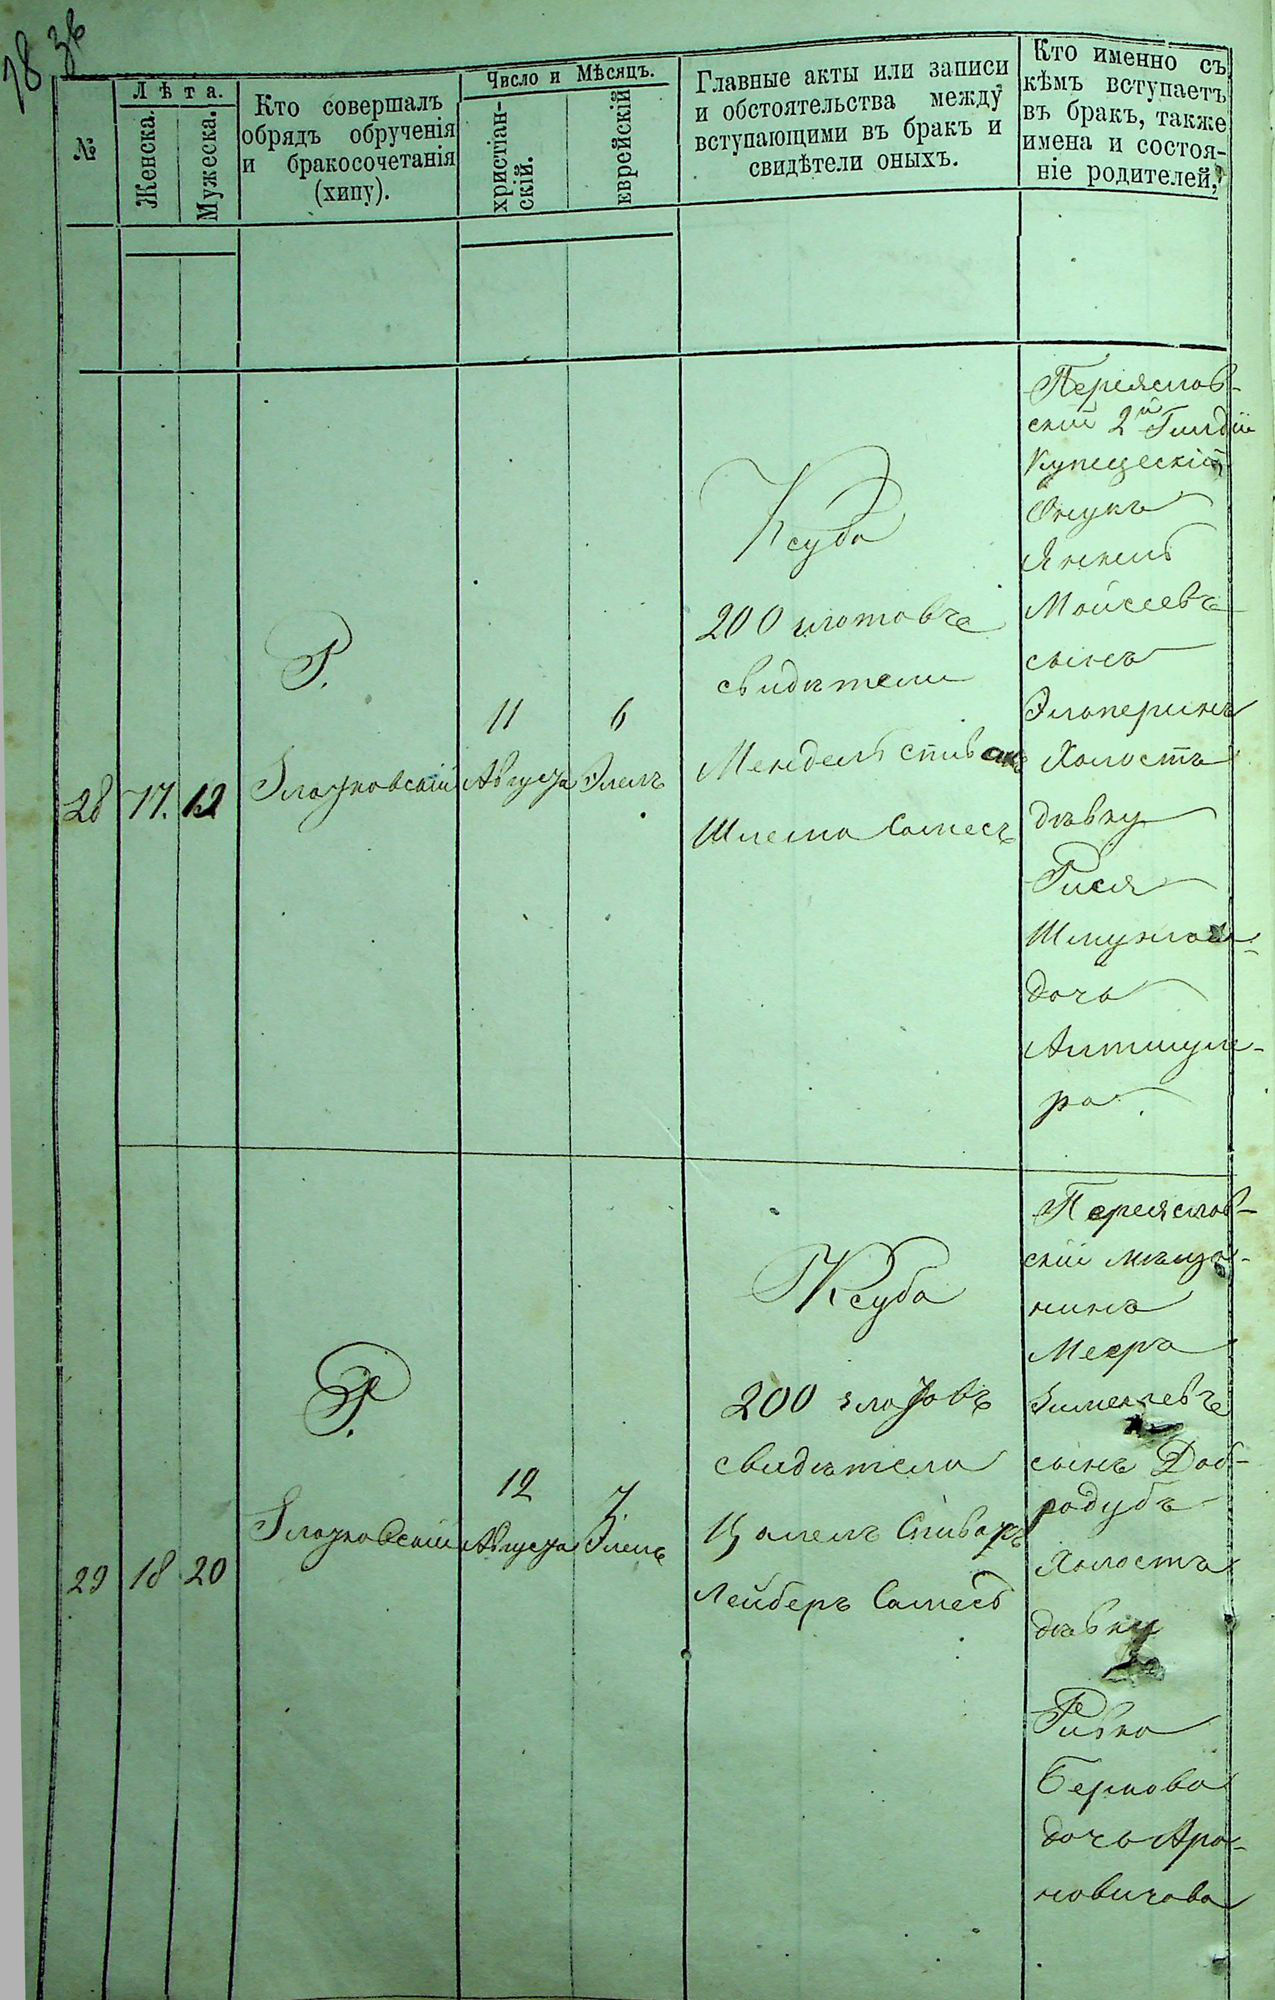 18
36
№
Лѣта.
Женска.
Мужеска.
Кто совершалъ
обрядъ обрученія
и бракосочетанія
(хипу).
Число и Мѣсяцъ.
христіан-
скій.
еврейскій
Главные акты или записи
и обстоятельства между
вступающими въ бракъ и
свидѣтели оныхъ.
Кто именно съ
кѣмъ вступаетъ
въ бракъ, также
имена и состоя-
ніе родителей.
28
17.
Р.
Глазковскій
11
Августа
6
Элелъ
Ксуба
200 злотовъ
свидѣтели
Мендель Спивакъ
Шлема
Переяслов-
скій 2й Гильдіи
Купеческій
Внукъ
Янкель
Мойсеевъ
сынъ
Элоперинъ
Холостъ
дѣвку
Рися
дочь
Алтшуле-
ра
29
18
20
Р.
Глазковскій
12
Августа
7
Элелъ
Ксуба
200 злотовъ
свидѣтели
Спиваръ
Лейберъ
Переяслов-
скій мѣща-
нинъ
Мееръ
сынъ Доб-
родубъ
Холостъ
дѣвку
Ривка
Беркова
дочь Аро-
новичова